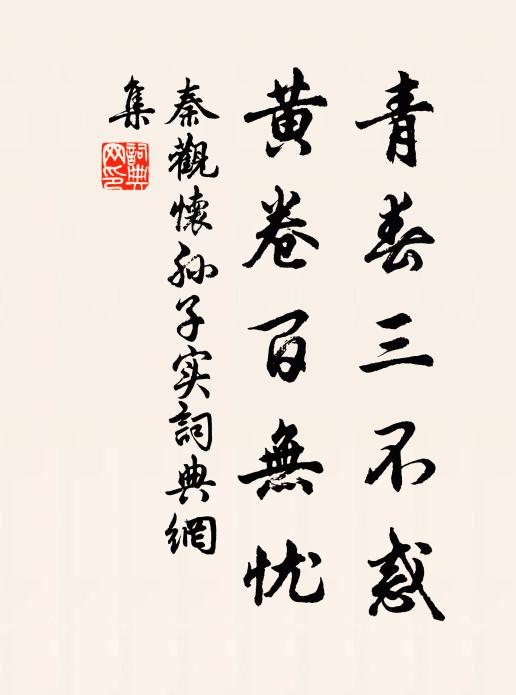 青春三不惑
黄卷百無忧
秦觀懷孙子实詞典網
集
詞典
网印